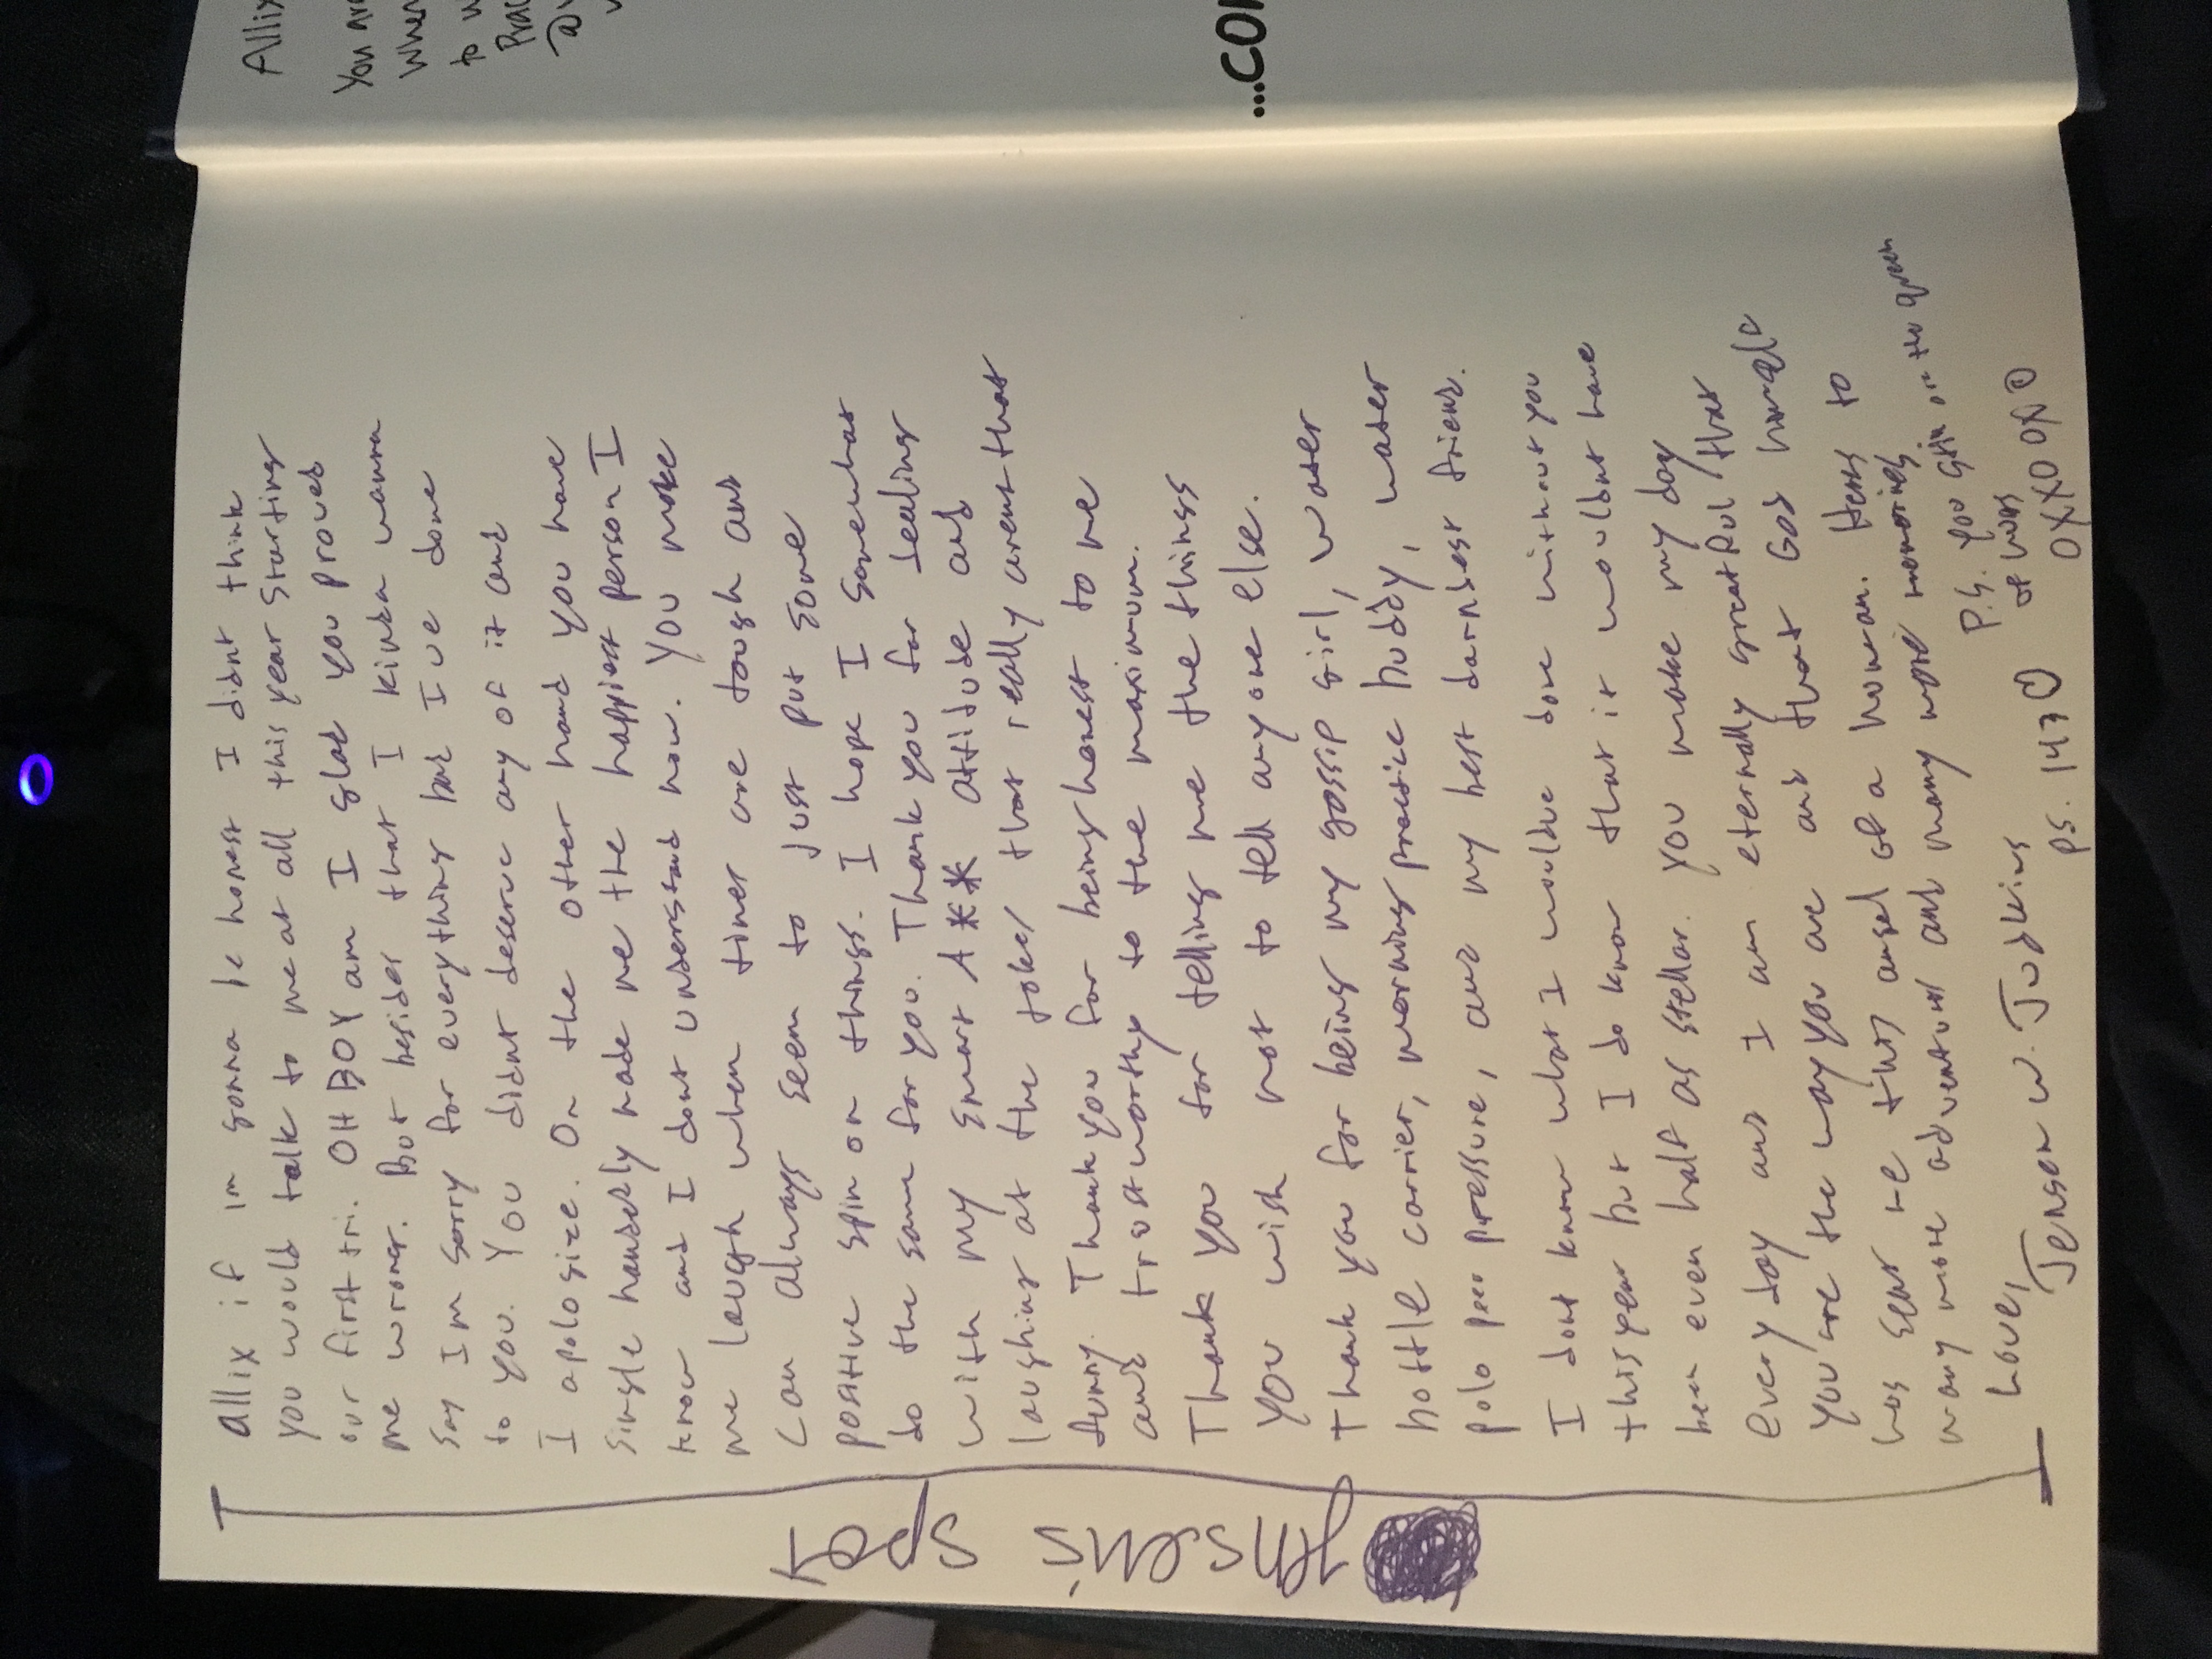 Jensen's spot
Allix if im gonna be honest I didnt think
you would talk to me at all this year starting
our first tri. OH BOY am I glad you proved
me wrong. But besides that I kinda wanna
say Im sorry for everything bad I ve done
to you. You didnt deserve any of it and
I apologize. On the other hand you have
single handedly made me the happiest person I
know and I dont understand how. You make
me laugh when times are tough and
can always seem to just put some
positive spin on things. I hope I somewhat
do the same for you. Thank you for dealing
with my smart A** attitude and
laughing at the jokes that really arent that
funny. Thank you for being honest to me
and trustworthy to the maximum.
Thank you for telling me the things
you wish not to tell anyone else.
Thank you for being my gossip girl, water
bottle carrier, morning practice buddy, water
polo peer pressure, and my best darndest friend.
I dont know what I wouldve done without you
this year but I do know that it wouldnt have
been even half as stellar. You make my day
every day and I am eternally greatful that
you are the way you are and that God himself
has sent me this angel of a human. Heres to
many more adventures and many more memories
Love,
Jensen W. Judkins
PS. 143♡
P.S. you still are the queen
of hugs
OXXOOXO
Allix
You are
When
to w
Prac
...CO